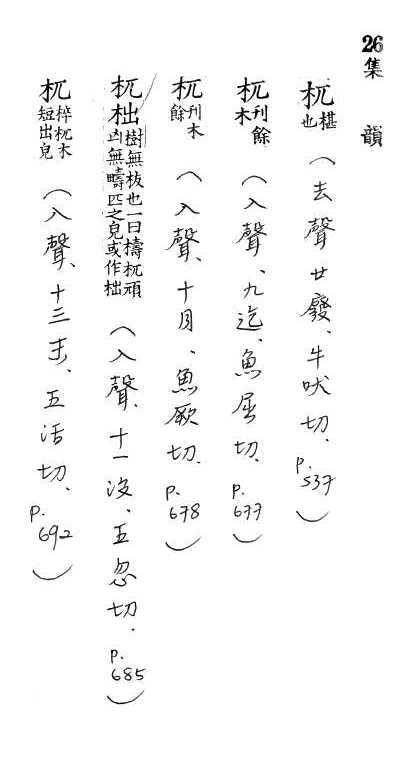 26集韻
杌椹也(去聲、廿廢、牛吠切、p.537)
杌刊餘木(入聲、九迄、魚屈切、p.677)
杌刊木餘(入聲、十月、魚厥切、p.678)
杌柮樹無枝也一曰擣杌頑凶無疇匹之皃或作柮(入聲、十一沒、五忽切、p.685)
杌椊杌木短出皃(入聲、十三末、五活切、p.692)